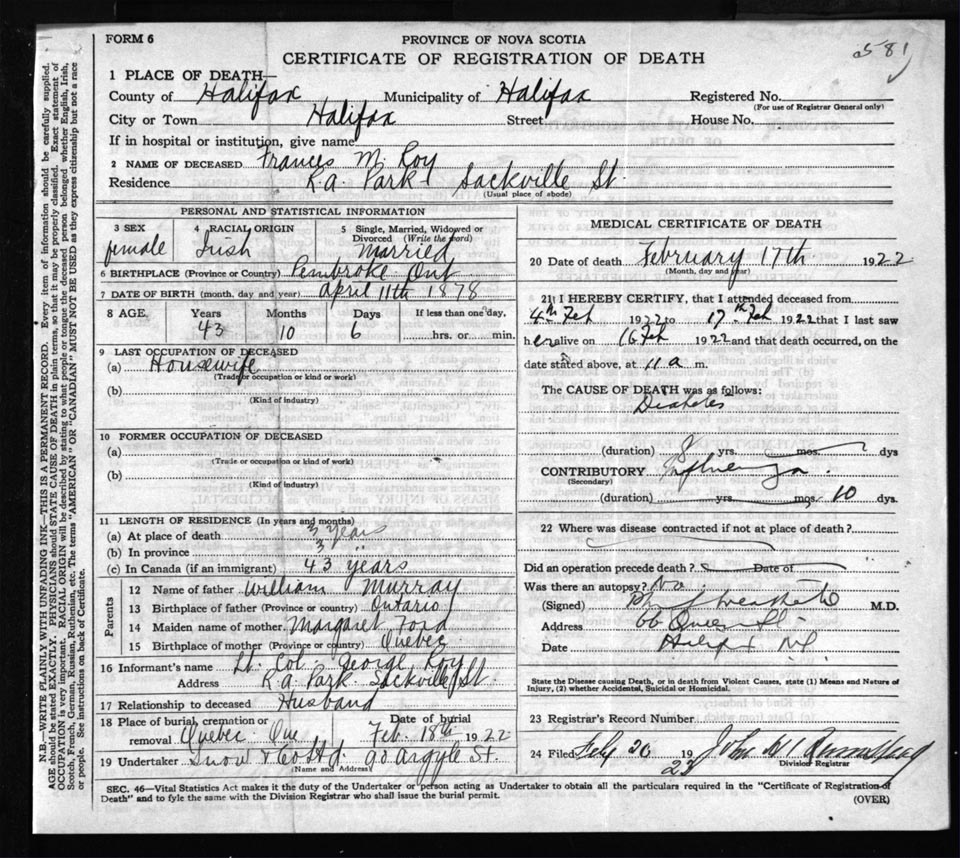 FORM 6
PROVINCE OF NOVA SCOTIA
CERTIFICATE OF REGISTRATION OF DEATH
581
1 PLACE OF DEATH—
County of Halifax Municipality of Halifax Registered No.
(For use of Registrar General only)
City or Town Halifax Street House No.
If in hospital or institution, give name
2 NAME OF DECEASED Frances M. Roy
Residence R.A. Park Sackville St.
(Usual place of abode)
PERSONAL AND STATISTICAL INFORMATION
3 SEX 4 RACIAL ORIGIN 5 Single, Married, Widowed or Divorced (Write the word)
female Irish Married
6 BIRTHPLACE (Province or Country) Pembroke Ont
7 DATE OF BIRTH (month, day and year) April 11th 1878
8 AGE Years Months Days If less than one day,
43 10 6 hrs. or min.
9 LAST OCCUPATION OF DECEASED
(a) Housewife
(Trade or occupation or kind or work)
(b)
(Kind of industry)
10 FORMER OCCUPATION OF DECEASED
(a)
(Trade or occupation or kind of work)
(b)
(Kind of industry)
11 LENGTH OF RESIDENCE (In years and months)
(a) At place of death 3 years
(b) In province 3 "
(c) In Canada (if an immigrant) 43 years
Parents
12 Name of father William Murray
13 Birthplace of father (Province or country) Ontario
14 Maiden name of mother Margaret Ford
15 Birthplace of mother (Province or country) Quebec
16 Informant's name Lt. Col. George Roy
Address R.A. Park Sackville St.
17 Relationship to deceased Husband
18 Place of burial, cremation or removal Quebec Que Date of burial Feb. 18th 1922
19 Undertaker Snow & Co Ltd 90 Argyle St.
(Name and Address)
MEDICAL CERTIFICATE OF DEATH
20 Date of death February 17th 1922
(Month, day and year)
21 I HEREBY CERTIFY, that I attended deceased from
4th Feb 1922 to 17th Feb 1922 that I last saw
her alive on 16 Feb 1922 and that death occurred, on the
date stated above, at 11 a m.
The CAUSE OF DEATH was as follows:
Diabetes
(duration) yrs. mos. dys
CONTRIBUTORY Influenza.
(Secondary)
(duration) yrs. mos. 10 dys.
22 Where was disease contracted if not at place of death?
Did an operation precede death? Date of
Was there an autopsy? No
(Signed) M.D.
Address 66 Queen St.
Date Halifax N.S.
State the Disease causing Death, or in death from Violent Causes, state (1) Means and Nature of Injury, (2) whether Accidental, Suicidal or Homicidal.
23 Registrar's Record Number
24 Filed Feby 20 19 22 John
Division Registrar
SEC. 46—Vital Statistics Act makes it the duty of the Undertaker or person acting as Undertaker to obtain all the particulars required in the "Certificate of Registration of
Death" and to fyle the same with the Division Registrar who shall issue the burial permit.
(OVER)
N.B.—WRITE PLAINLY WITH UNFADING INK—THIS IS A PERMANENT RECORD. Every item of information should be carefully supplied.
AGE should be stated EXACTLY. PHYSICIANS should STATE CAUSE OF DEATH in plain terms, so that it may be properly classified. Exact statement of
OCCUPATION is very important. RACIAL ORIGIN will be described by stating to what people or tongue the deceased person belonged whether English, Irish,
Scotch, French, German, Russian, Ruthenian, etc. The terms "AMERICAN" OR "CANADIAN" MUST NOT BE USED as they express citizenship but not a race
or people. See instructions on back of Certificate.